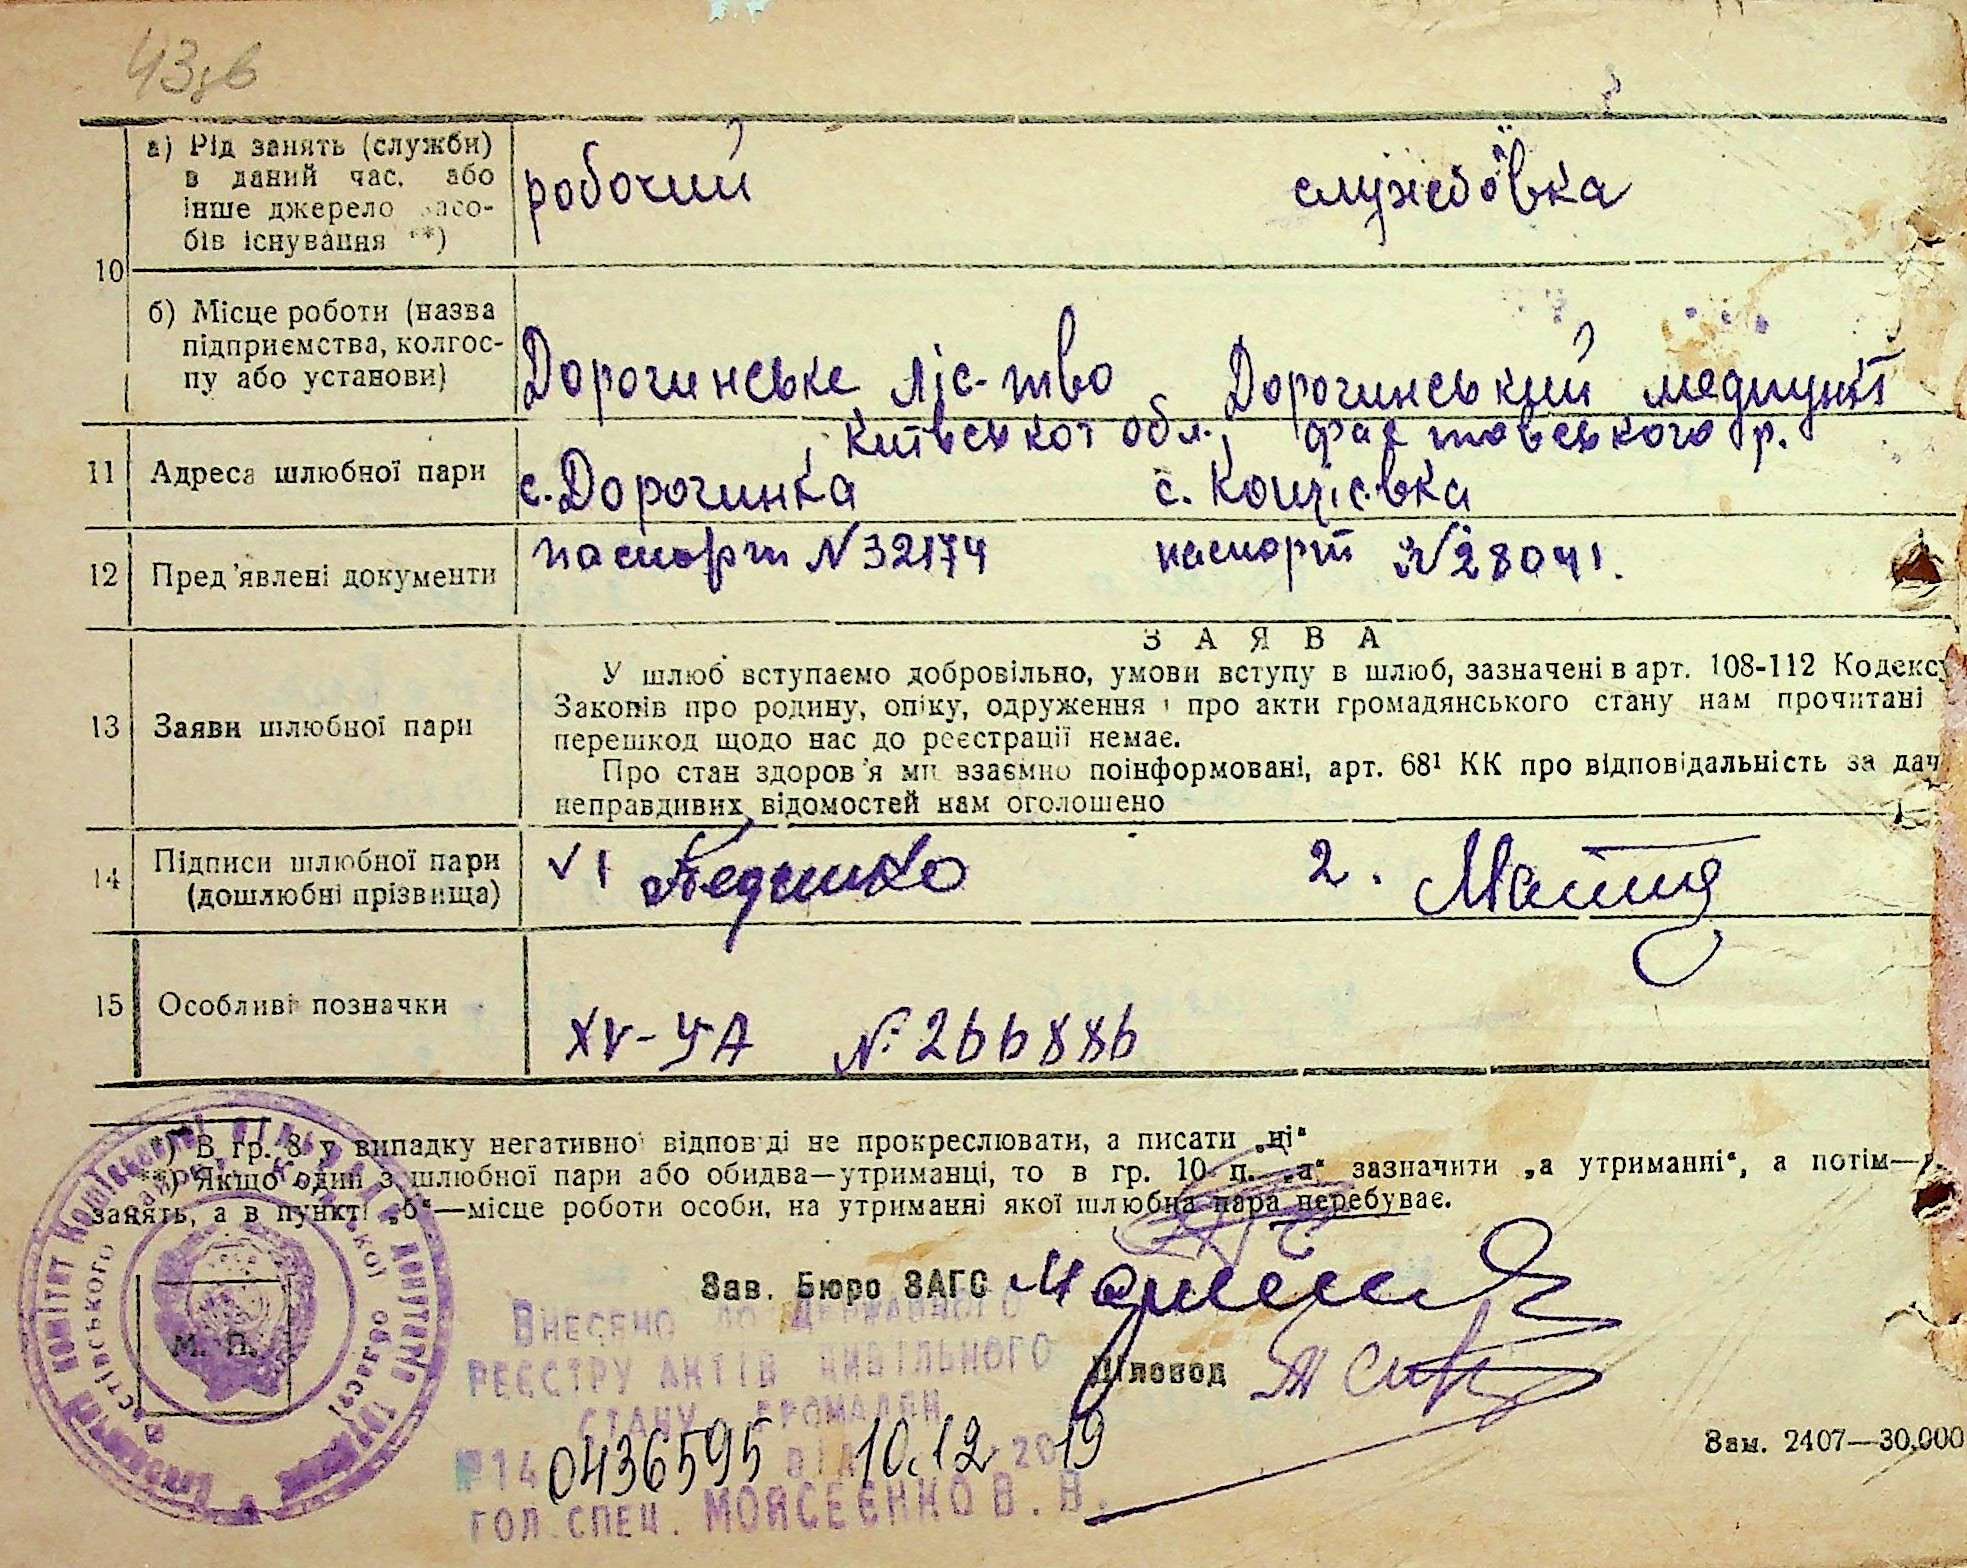 43зв
а) Рід занять (служби)
в даний час. або
інше джерело засо-
бів існування **)
робочий службовка
10
б) Місце роботи (назва
підприємства, колгос-
пу або установи)
Дорогинське ліс-тво Дорогинський медпункт
Київської обл., Фастовського р.
11 Адреса шлюбної пари с. Дорогинка с. Кощіївка
12 Пред'явлені документи паспорт N 32174 паспорт N 28041.
З А Я В А
У шлюб вступаємо добровільно, умови вступу в шлюб, зазначені в арт. 108-112 Кодексу
Законів про родину, опіку, одруження і про акти громадянського стану нам прочитані
13 Заяви шлюбної пари
перешкод щодо нас до реєстрації немає.
Про стан здоров'я ми взаємно поінформовані, арт. 68¹ КК про відповідальність за дач
неправдивих відомостей нам оголошено
14 Підписи шлюбної пари
(дошлюбні прізвища)
√ 1 2.
15 Особливі позначки
XV-УА № 266886
*) В гр. 8 у випадку негативної відповіді не прокреслювати, а писати „ні“
**) Якщо один з шлюбної пари або обидва—утриманці, то в гр. 10 п. „а“ зазначити „а утриманні“, а потім—
занять, а в пункті „б“—місце роботи особи, на утриманні якої шлюбна пара перебуває.
М. П.
Зав. Бюро ЗАГС
Внесено до Державного
реєстру актів цивільного
Діловод
стану громадян
№14 0436595 від 10.12 2019
гол. спец. Моясеєнко В. В.
Зам. 2407—30.000